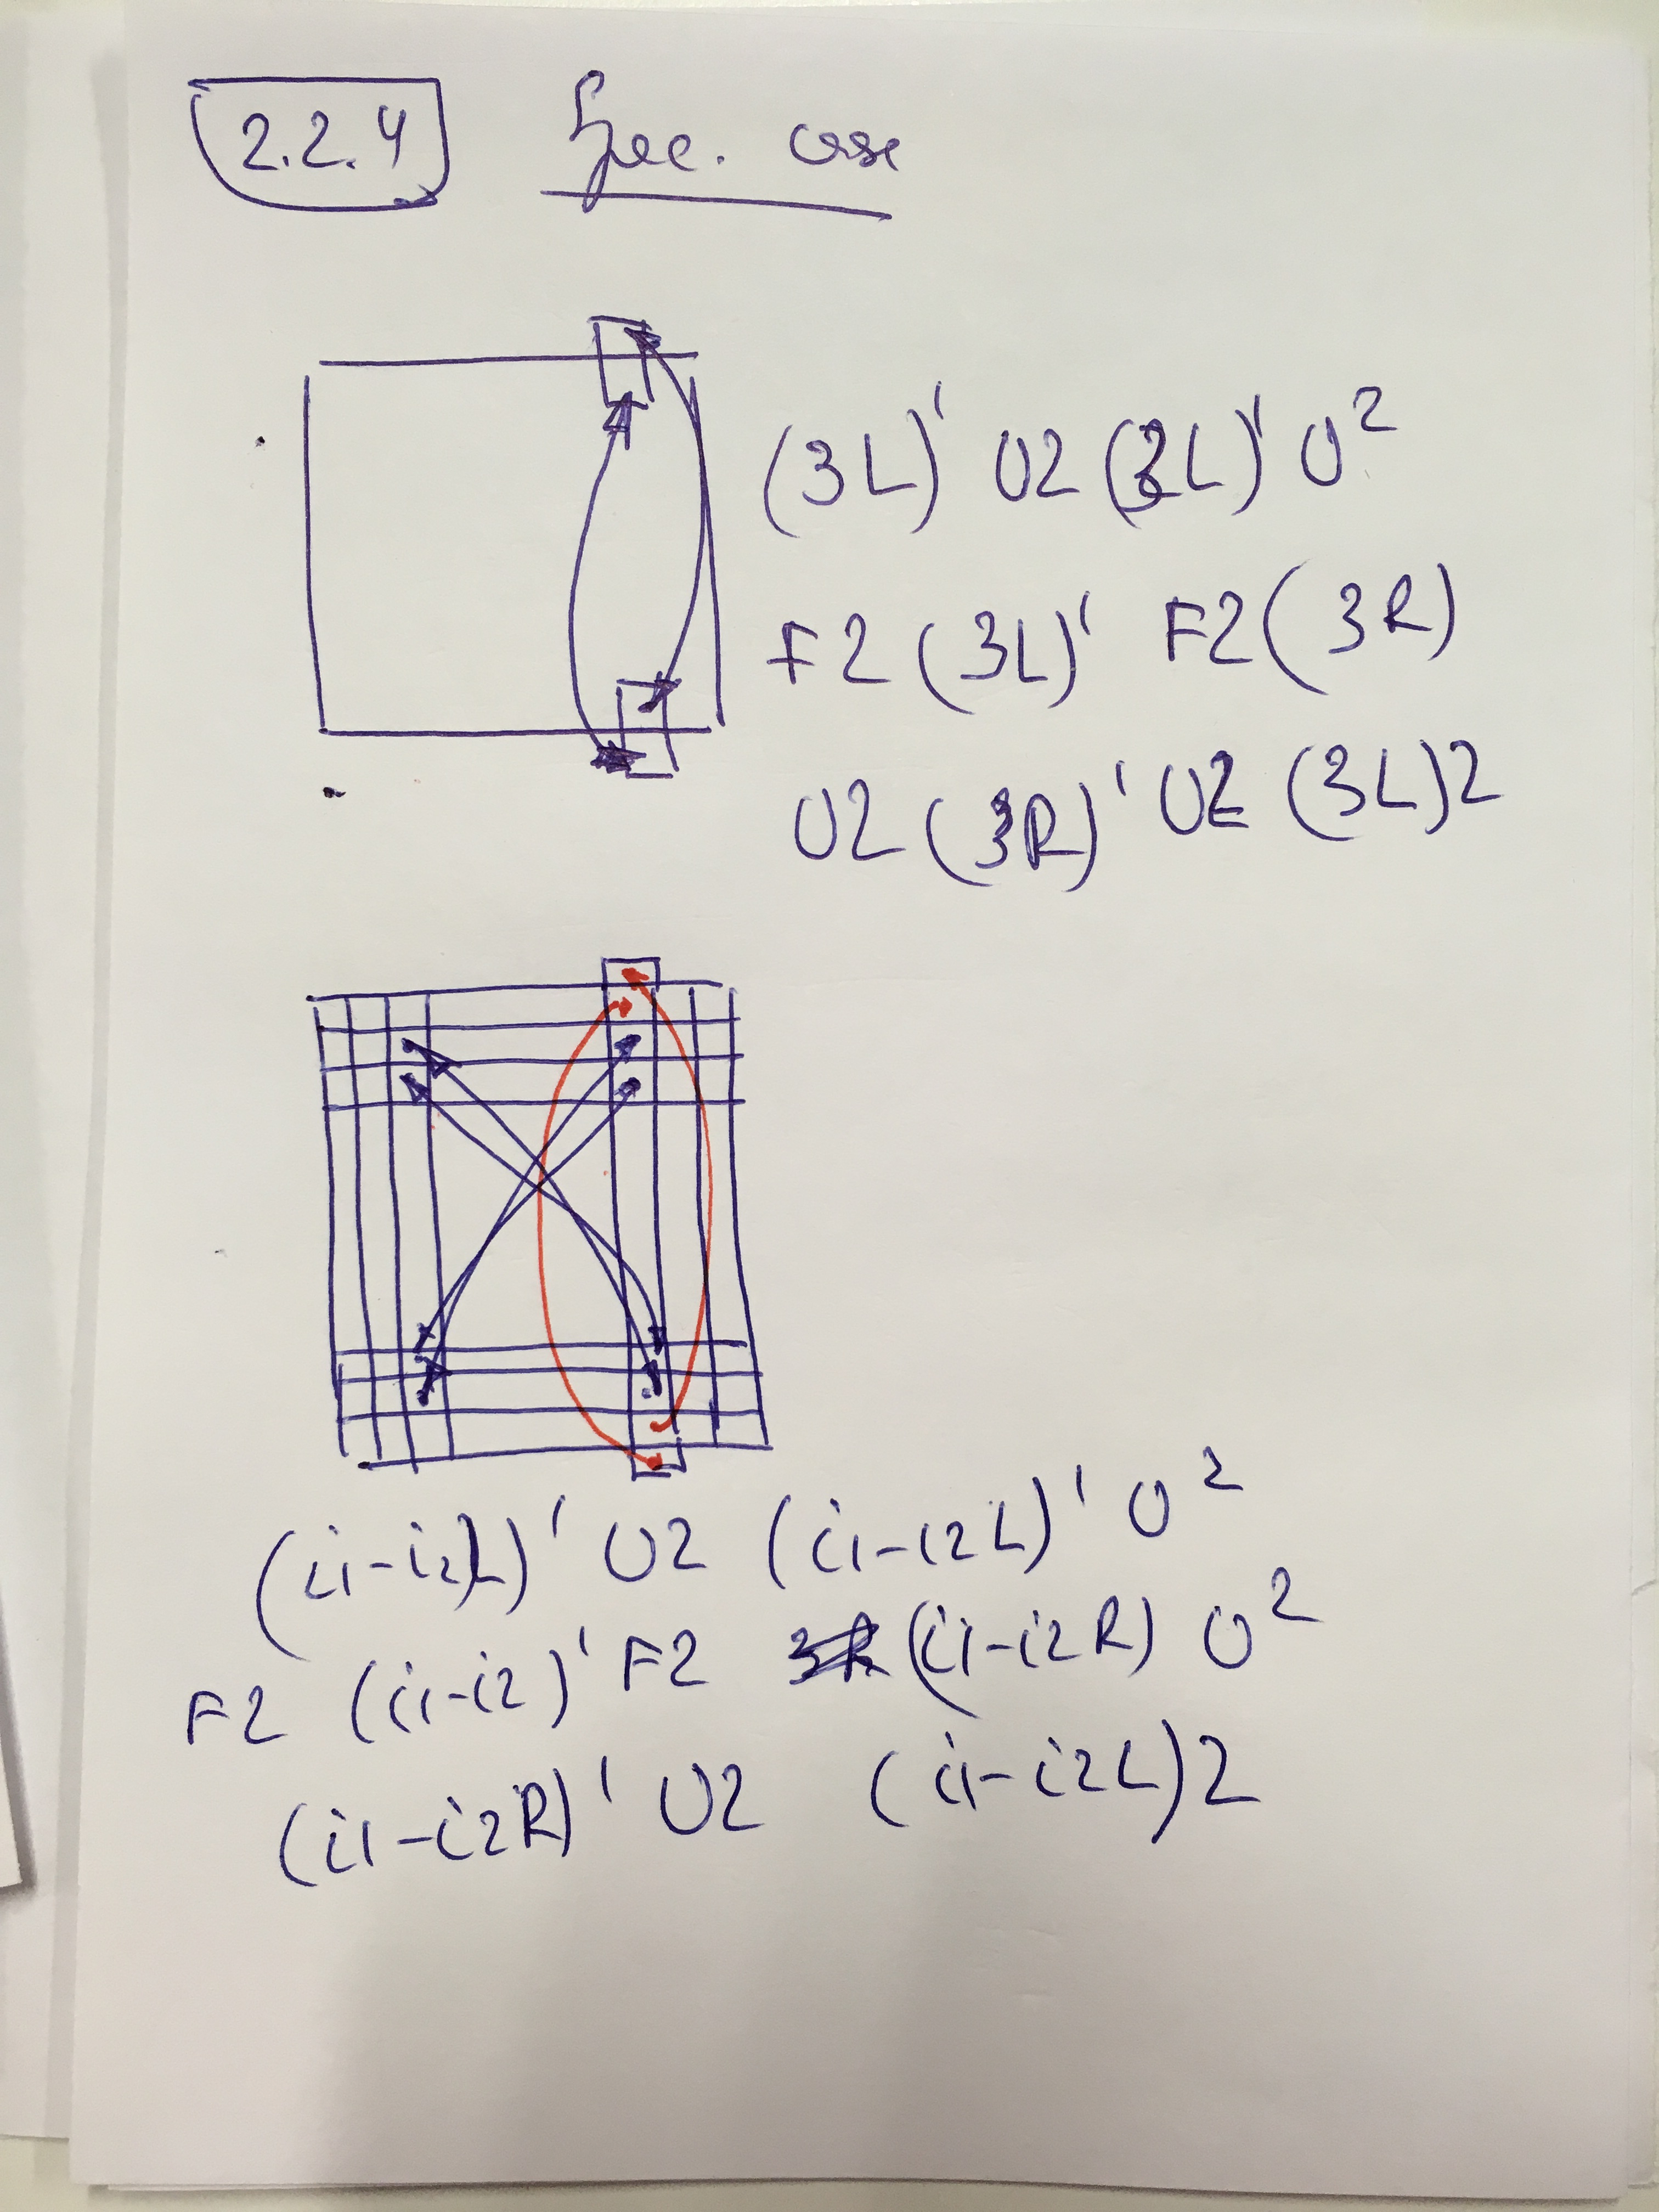 2.2.4 Spec. case
(3L)' U2 (3L)' U²
F2 (3L)' F2 (3R)
U2 (3R)' U2 (3L)2
(i1-i2L)' U2 (i1-i2L)' U²
F2 (i1-i2)' F2 (i1-i2R) U²
(i1-i2R)' U2 (i1-i2L)2